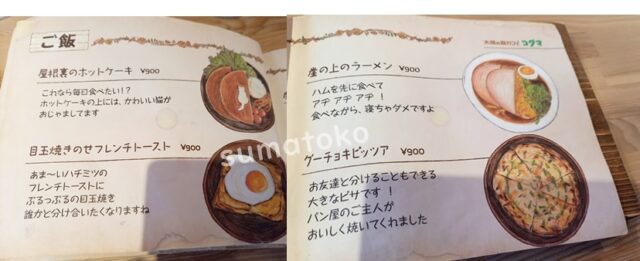 ご飯
屋根裏のホットケーキ ¥900
これなら毎日食べたい！？
ホットケーキの上には、かわいい猫が
おじゃましてます
目玉焼きのせフレンチトースト ¥900
あま〜いハチミツの
フレンチトーストに
ぷるっぷるの目玉焼き
誰かと分け合いたくなりますね
崖の上のラーメン ¥900
ハムを先に食べて
アチ アチ アチ！
食べながら、寝ちゃダメですよ
グーチョキピッツア ¥900
お友達と分けることもできる
大きなピザです！
パン屋のご主人が
おいしく焼いてくれました
sumatoko